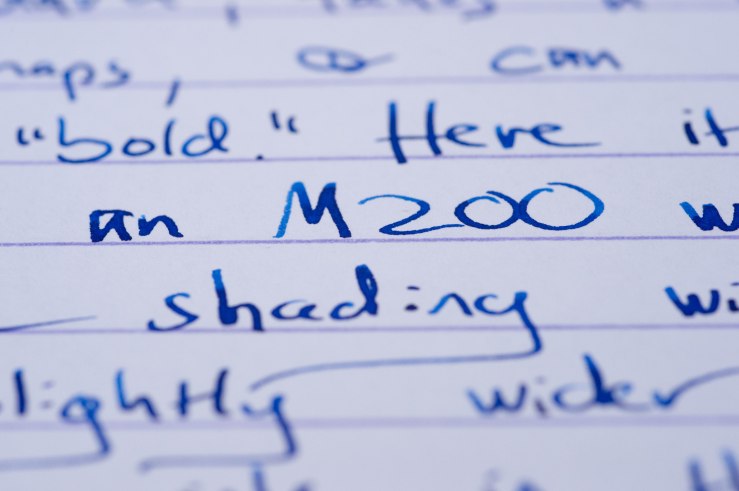 a can
"bold." Here it
an M200 w
shading wi
lightly wider
in th